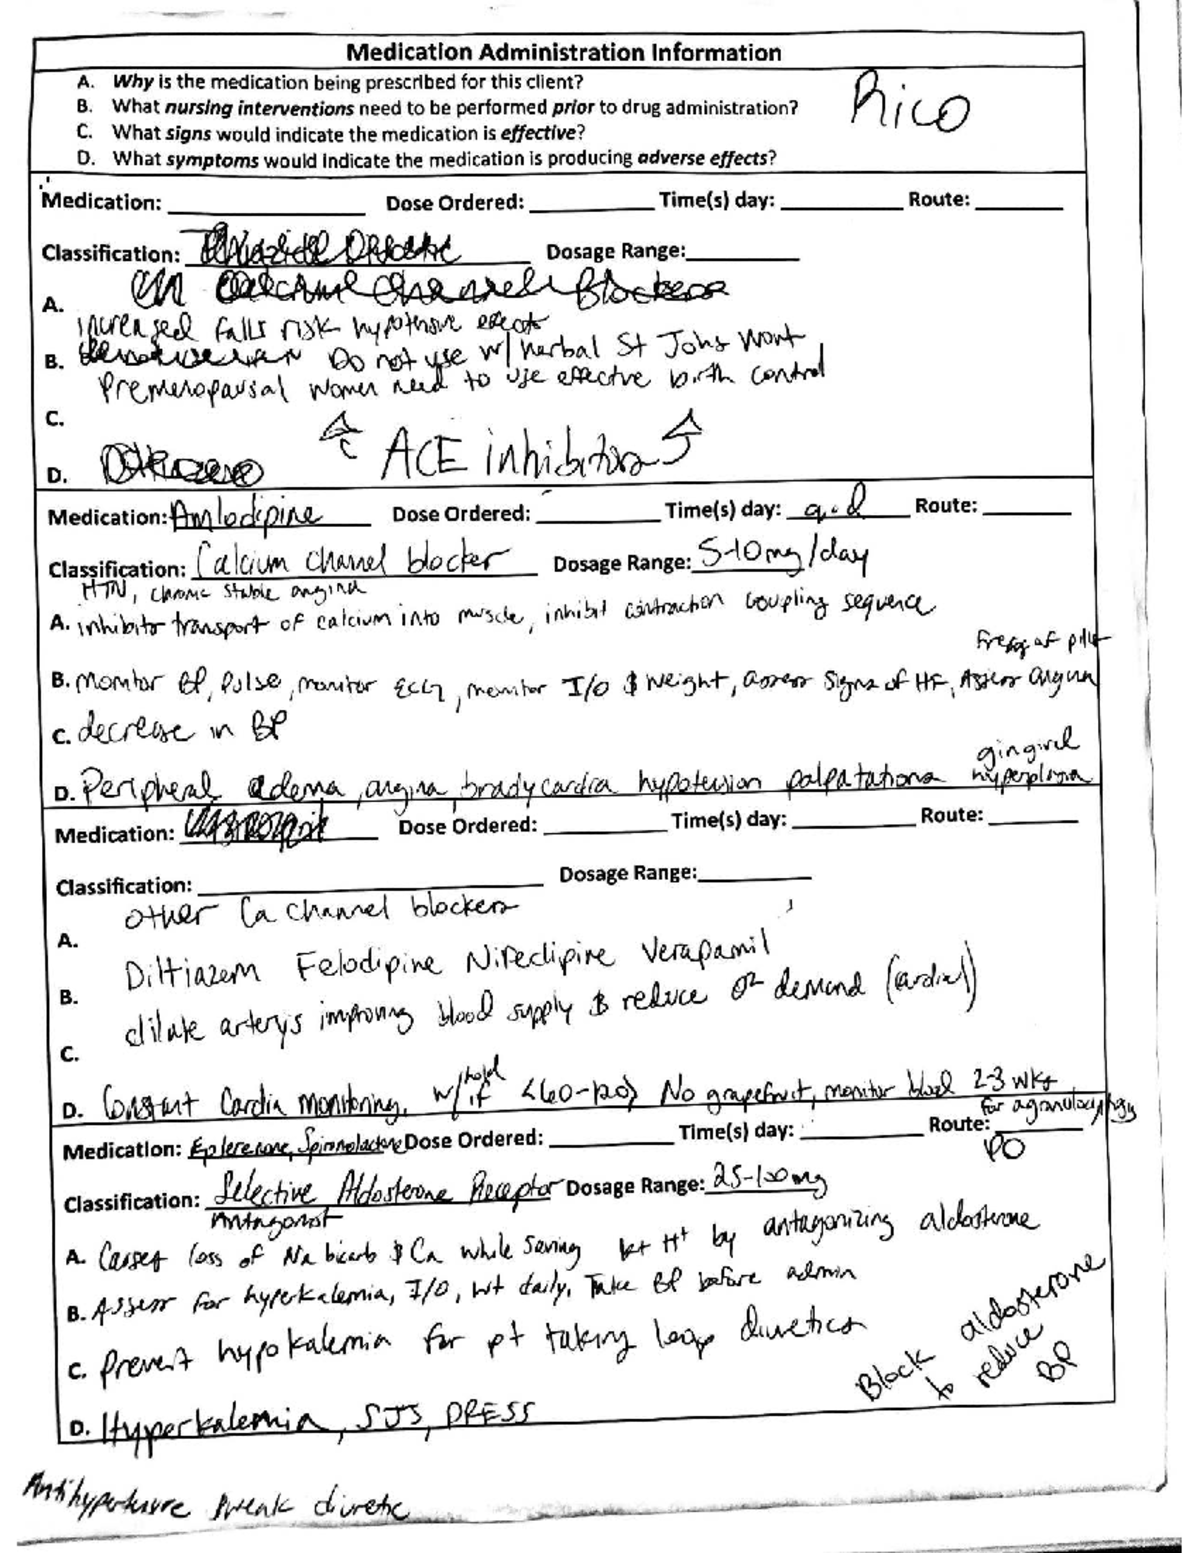 Medication Administration Information
A. Why is the medication being prescribed for this client?
B. What nursing interventions need to be performed prior to drug administration?
C. What signs would indicate the medication is effective?
D. What symptoms would indicate the medication is producing adverse effects?
Rico
Medication: Dose Ordered: Time(s) day: Route:
Classification: Dosage Range:
A.
increased falls risk hypotensive effects
B. Do not use w/ herbal St Johs Wort
Premenopausal women need to use effective birth control
C.
ACE inhibitors
D.
Medication: Amlodipine Dose Ordered: Time(s) day: q.d Route:
Classification: Calcium channel blocker Dosage Range: 5-10mg/day
HTN, chronic stable angina
A. inhibits transport of calcium into muscle, inhibit contraction coupling sequence
B. monitor BP, Pulse, monitor ECG, monitor I/O & weight, assess signs of HF, Assess angina
C. decrease in BP
D. Peripheral edema, angina, bradycardia hypotension palpatations gingival hyperplasia
Medication: Dose Ordered: Time(s) day: Route:
Classification: Dosage Range:
other Ca channel blockers
A.
Diltiazem Felodipine Nifedipine Verapamil
B.
dilate arterys improving blood supply & reduce O2 demand (cardial)
C.
D. Constant Cardia monitoring, w/ hold if <60-120> No grapefruit, monitor blood 2-3 wks for agranulocytosis
Medication: Eplerenone, Spironolactone Dose Ordered: Time(s) day: Route: PO
Classification: Selective Aldosterone Receptor Dosage Range: 25-100mg
Antagonist
A. Causes loss of Na bicarb & Ca while saving K+ H+ by antagonizing aldosterone
B. Assess for hyperkalemia, I/O, wt daily, Take BP before admin
C. Prevent hypokalemia for pt taking loop diuretics
Block aldosterone
to reduce
BP
D. Hyperkalemia, SJS, DRESS
Antihypertensive weak diuretic